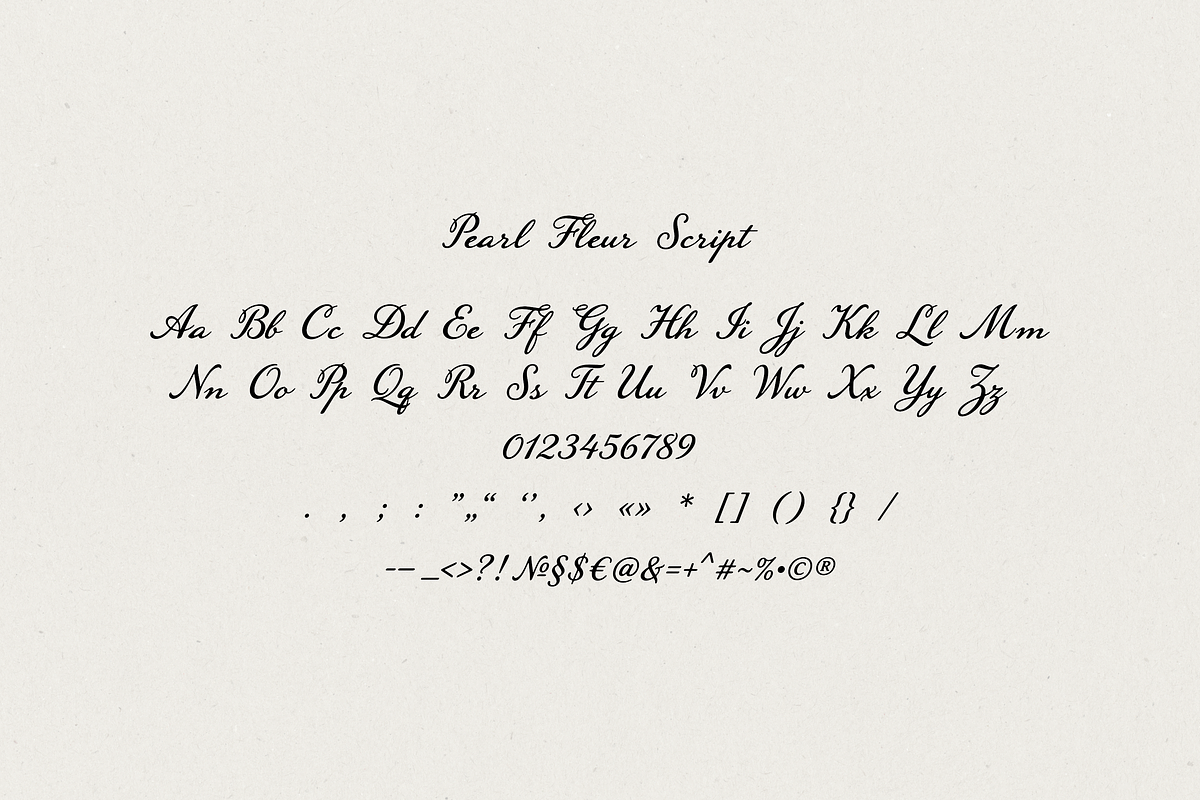 Pearl Fleur Script
Aa Bb Cc Dd Ee Ff Gg Hh Ii Jj Kk Ll Mm
Nn Oo Pp Qq Rr Ss Tt Uu Vv Ww Xx Yy Zz
0123456789
. , ; : ”„“ ‘’, ‹› «» * [] () {} /
-–_<>?!№§$€@&=+^#~%•©®